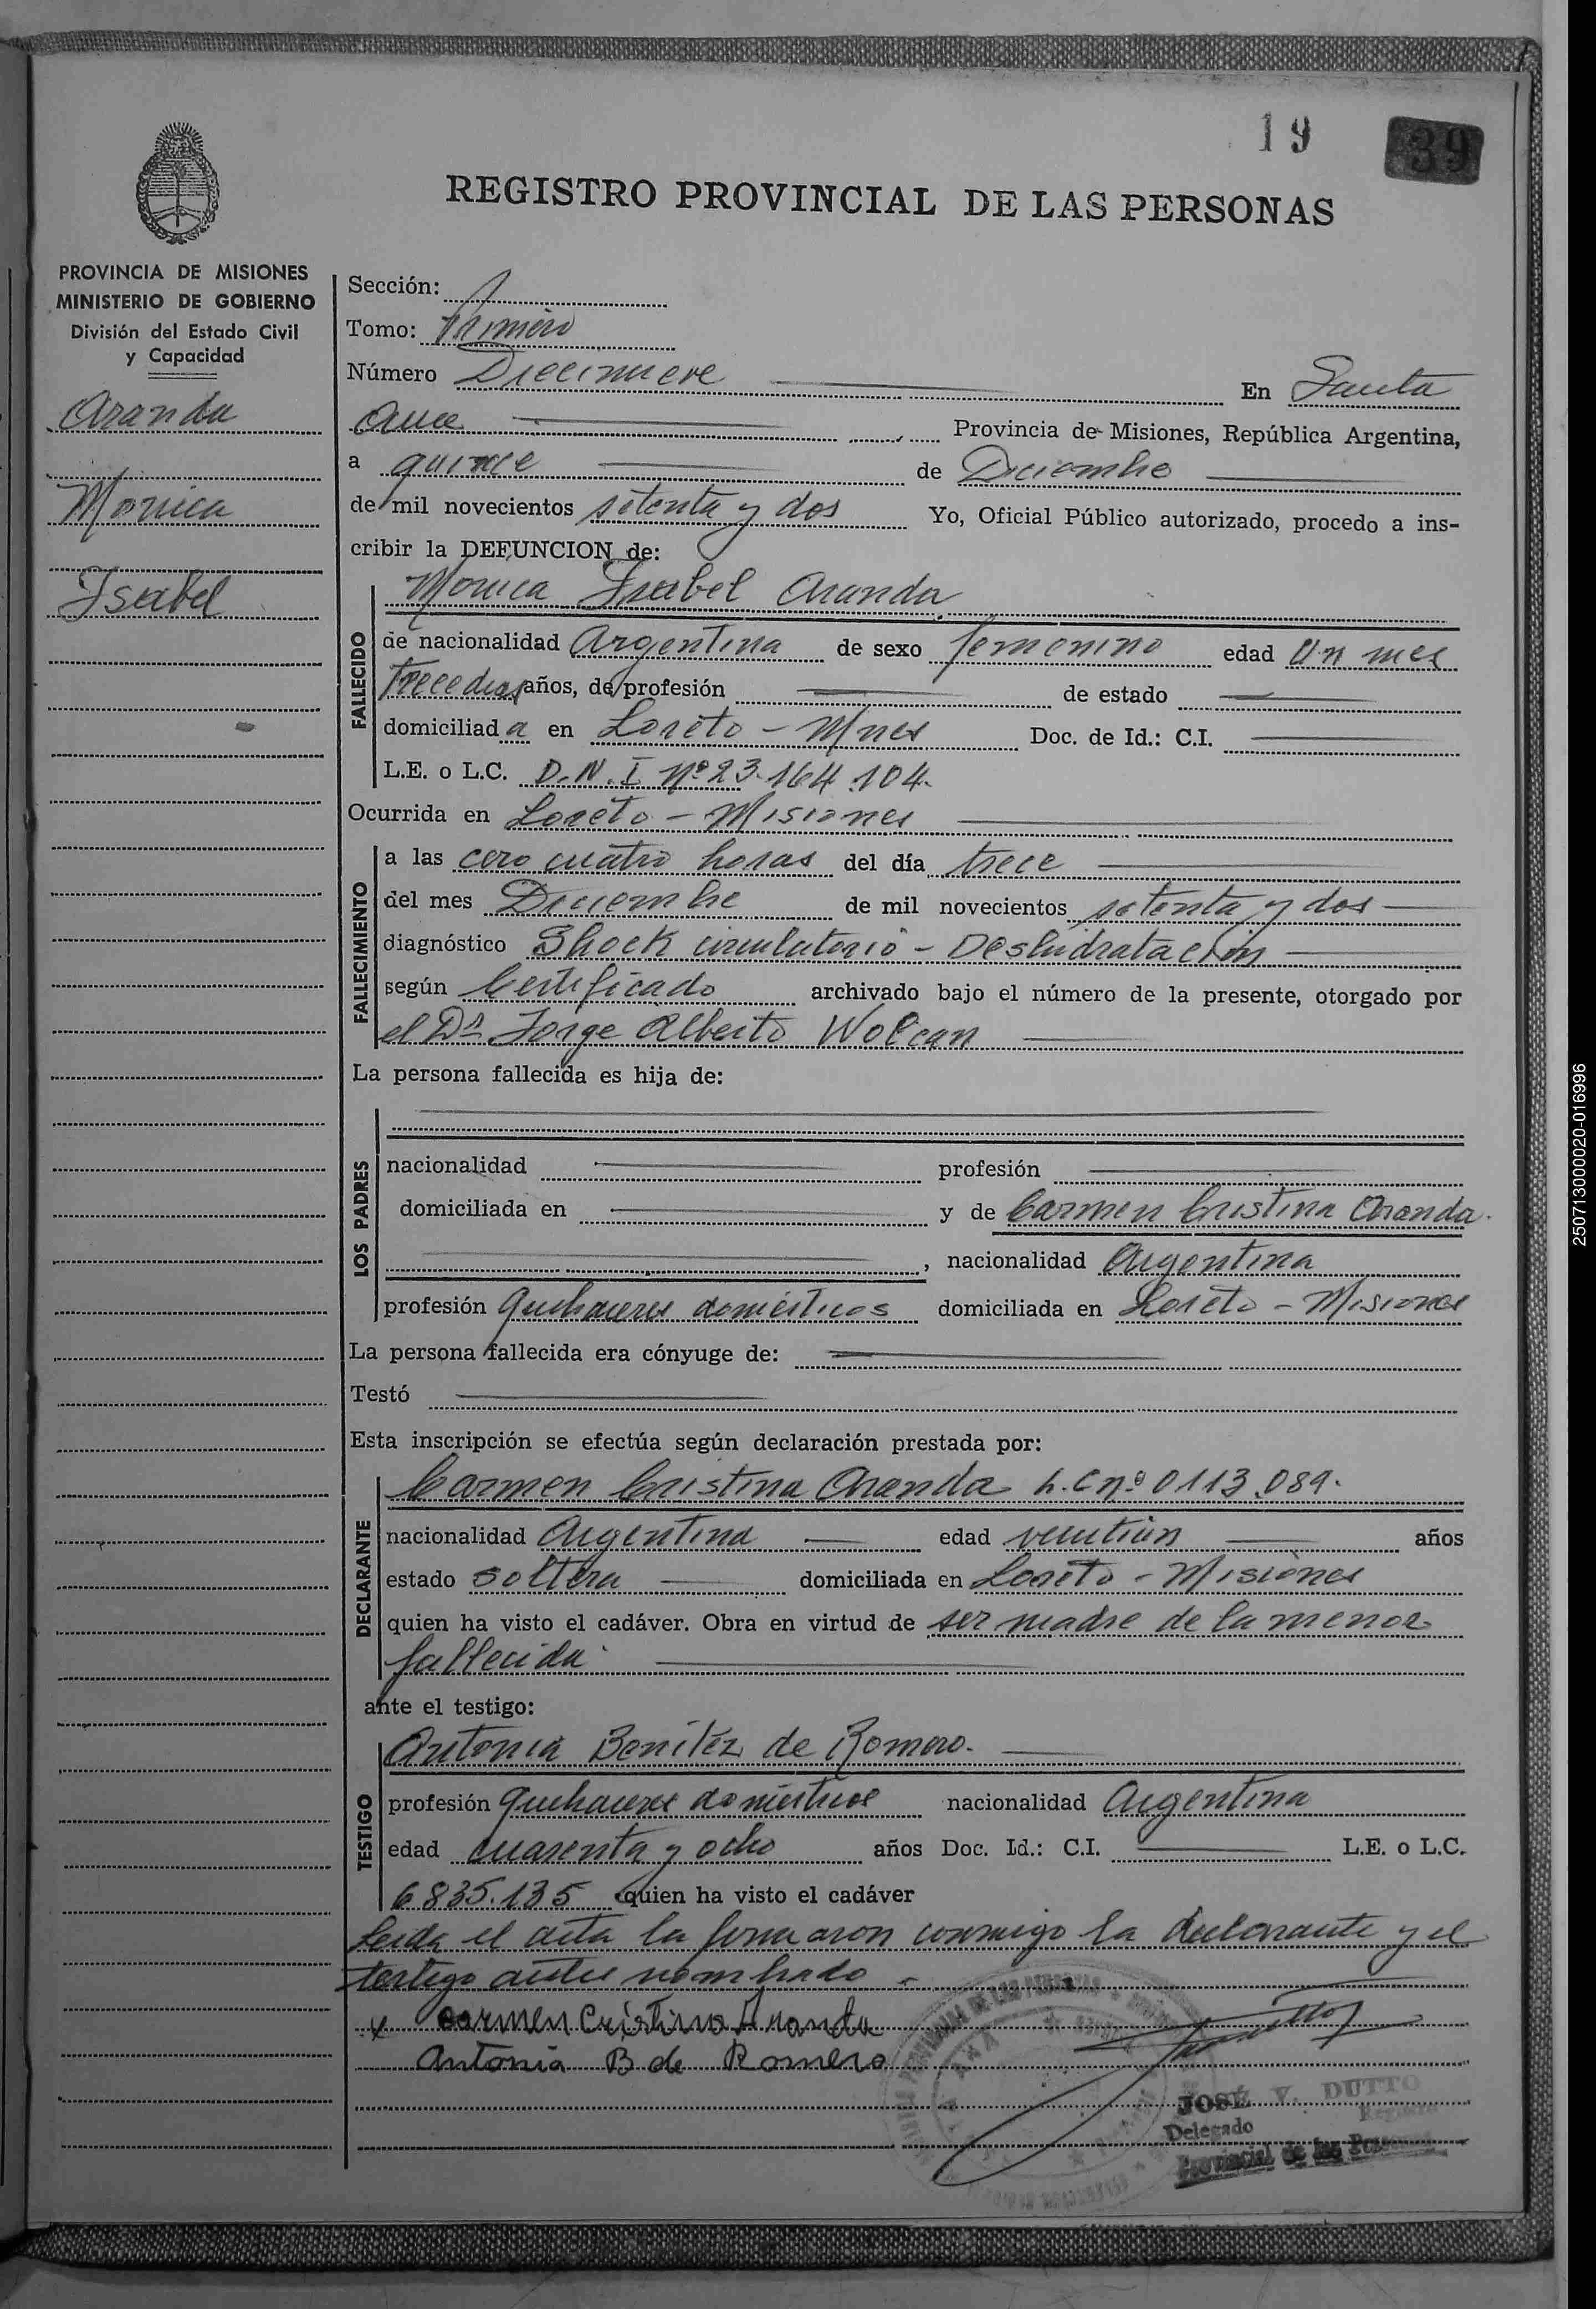 19
39
REGISTRO PROVINCIAL DE LAS PERSONAS
PROVINCIA DE MISIONES
MINISTERIO DE GOBIERNO
División del Estado Civil
y Capacidad
Aranda
Monica
Isabel
Sección: 1
Tomo: Primero
Número Diecinueve En Santa
Ana Provincia de Misiones, República Argentina,
a quince de Diciembre
de mil novecientos setenta y dos Yo, Oficial Público autorizado, procedo a ins-
cribir la DEFUNCION de:
Monica Isabel Aranda
FALLECIDO
de nacionalidad Argentina de sexo femenino edad Un mes
trece dias años, de profesión de estado
domiciliada en Loreto - Mnes Doc. de Id.: C.I.
L.E. o L.C. D.N.I Nº 23.164.104.
Ocurrida en Loreto - Misiones
FALLECIMIENTO
a las cero cuatro horas del día trece
del mes Diciembre de mil novecientos setenta y dos
diagnóstico Shock circulatorio - Deshidratación
según Certificado archivado bajo el número de la presente, otorgado por
el Dr Jorge Alberto Wolcan
La persona fallecida es hija de:
LOS PADRES
nacionalidad profesión
domiciliada en y de Carmen Cristina Aranda.
, nacionalidad Argentina
profesión Quehaceres domésticos domiciliada en Loreto - Misiones
La persona fallecida era cónyuge de:
Testó
Esta inscripción se efectúa según declaración prestada por:
DECLARANTE
Carmen Cristina Aranda L.C nº 0113.089.
nacionalidad Argentina edad veintiún años
estado soltera domiciliada en Loreto - Misiones
quien ha visto el cadáver. Obra en virtud de ser madre de la menor
fallecida
ante el testigo:
TESTIGO
Antonia Benítez de Romero.
profesión Quehaceres domésticos nacionalidad Argentina
edad cuarenta y ocho años Doc. Id.: C.I. L.E. o L.C.
6.835.135 quien ha visto el cadáver
Leida el acta la firmaron conmigo la declarante y el
testigo antes nombrado -
x Carmen Cristina Aranda
Antonia B de Romero
JOSÉ V. DUTTO
Delegado Registro
Provincial de las Personas
250713000020-016996